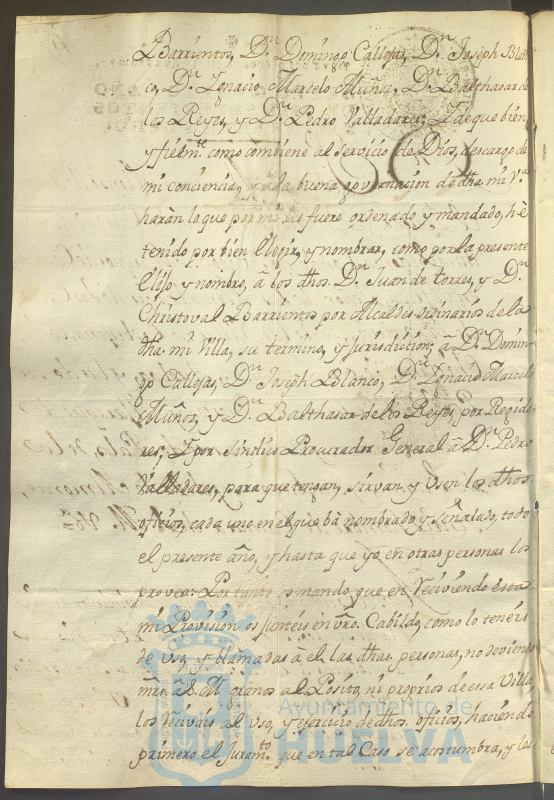 Barrientos, Dn. Domingo Callejas, Dn. Joseph Blan
co, Dn. Ygnacio Marcelo Muñoz, Dn. Balthasar de
los Reyes, y Dn. Pedro Valladares; I de que bien,
y fielmte. como combiene al servicio de Dios, descargo de
mi conciencia, y a la buena governacion de dha. mi Va.
haràn lo que por mi les fuere ordenado y mandado, hè
tenido por bien Elegir, y nombrar, como por la presente
Elijo y nombro, à los dhos. Dn. Juan de torres, y Dn.
Christoval Barrientos por Alcaldes ordinarios de la
dha. mi Villa, su termino, y jurisdiccion; à Dn. Domin
go Callejas, Dn. Joseph Blanco, Dn. Ygnacio Marcelo
Muñoz, y Dn. Balthasar de los Reyes, por Regido
res; I por sindico Procurador General à Dn. Pedro
Valladares, para que tengan, sirvan y Usen los dhos
oficios, cada uno en el que bà nombrado y señalado, todo
el presente año, y hasta que yo en otras personas los
provea: Por tanto os mando, que en reciviendo esta
mi Provision os juntéis en vro. Cabildo, como lo tenéis
de uso, y llamadas à el las dhas. personas, no deviendo
mrs. à S.M. granos al Posito, ni proprios de essa Villa,
los recivais al uso, y exercicio de dhos. oficios, haciendo
primero el Juramto. que en tal Caso se acostumbra, y los
Ayuntamiento de
HUELVA